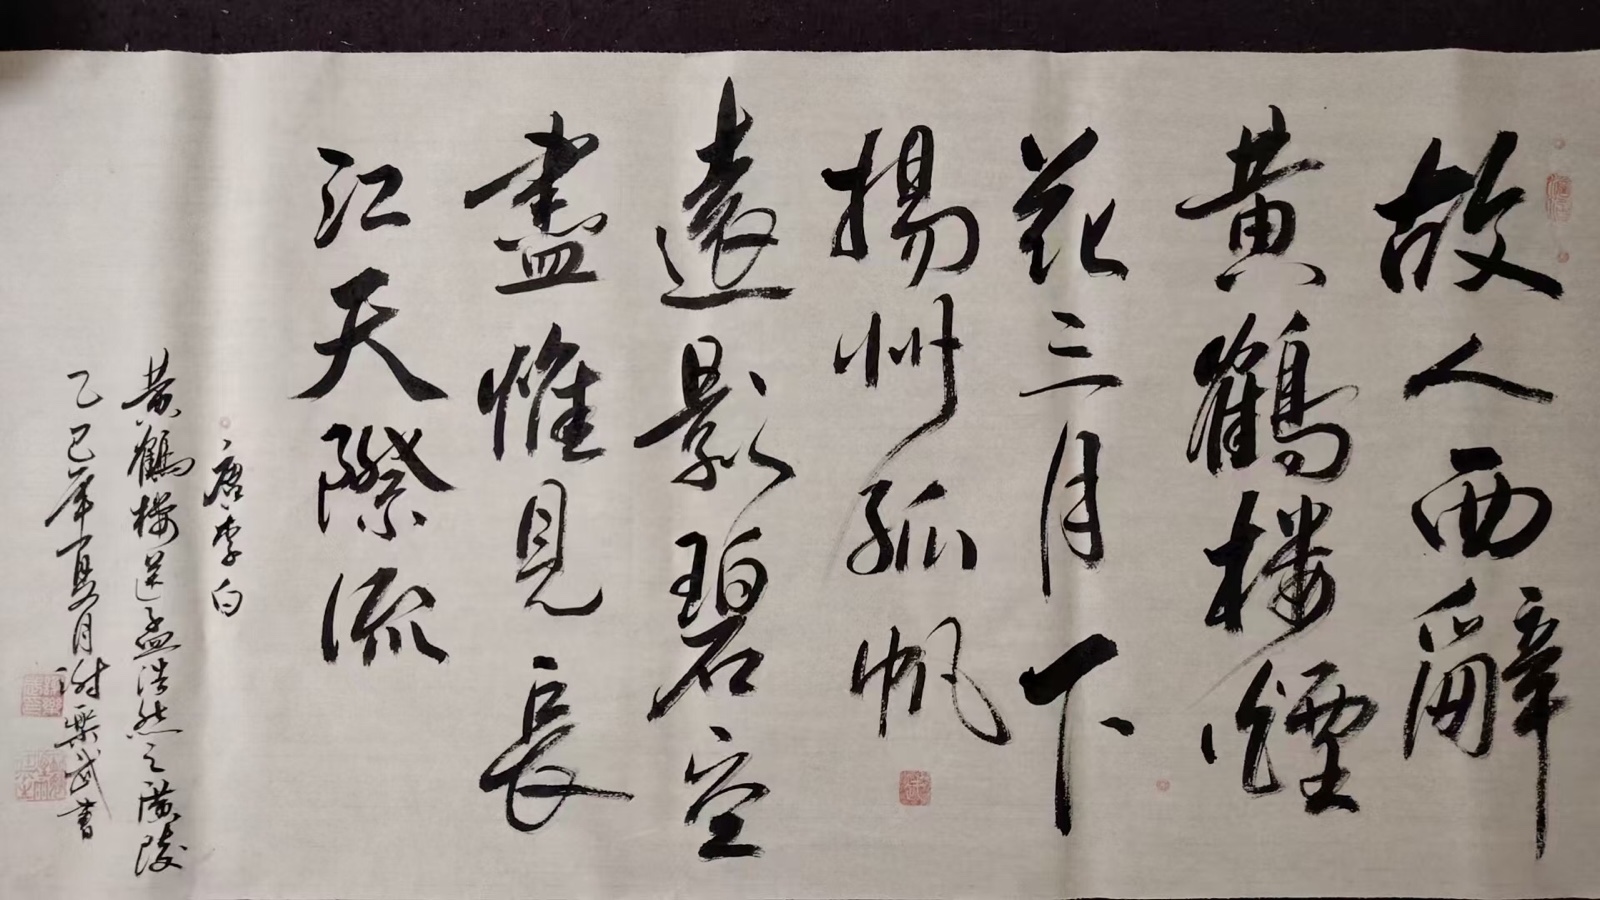 故人西辭
黃鶴樓煙
花三月下
揚州孤帆
遠影碧空
盡惟見長
江天際流
唐李白
黃鶴樓送孟浩然之廣陵
乙巳年夏月謝樂武書